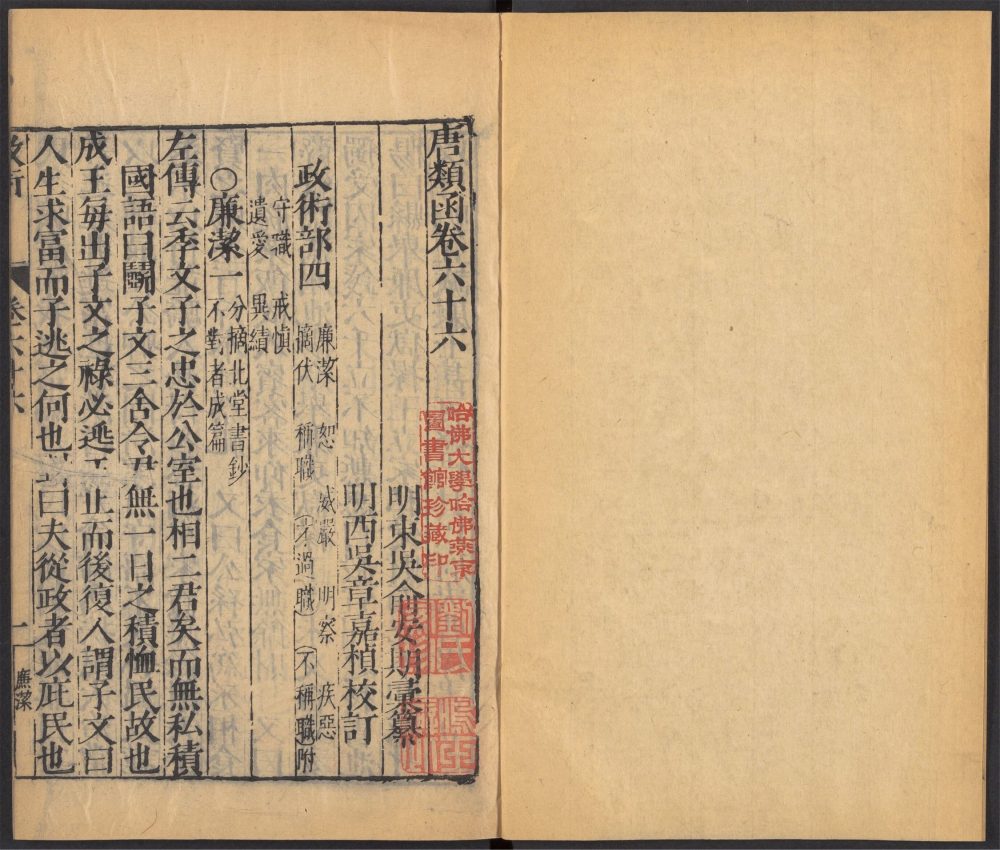 唐類函卷六十六
明東吳俞安期彙纂
明西吳章嘉楨校訂
政術部四
廉潔 恕 威嚴 明察 疾惡
摘伏 稱職 不過職 不稱職附
守職 戒慎
遺愛 異績
○廉潔一
分摘北堂書鈔
不對者成篇
左傳云季文子之忠於公室也相二君矣而無私積
國語曰鬬子文三舍令尹無一日之積恤民故也
成王每出子文之祿必逃王止而後復人謂子文曰
人生求富而子逃之何也 曰夫從政者以庇民也
政術
卷六十六
一
廉潔
哈佛大學哈佛燕京
圖書館珍藏印
劉氏